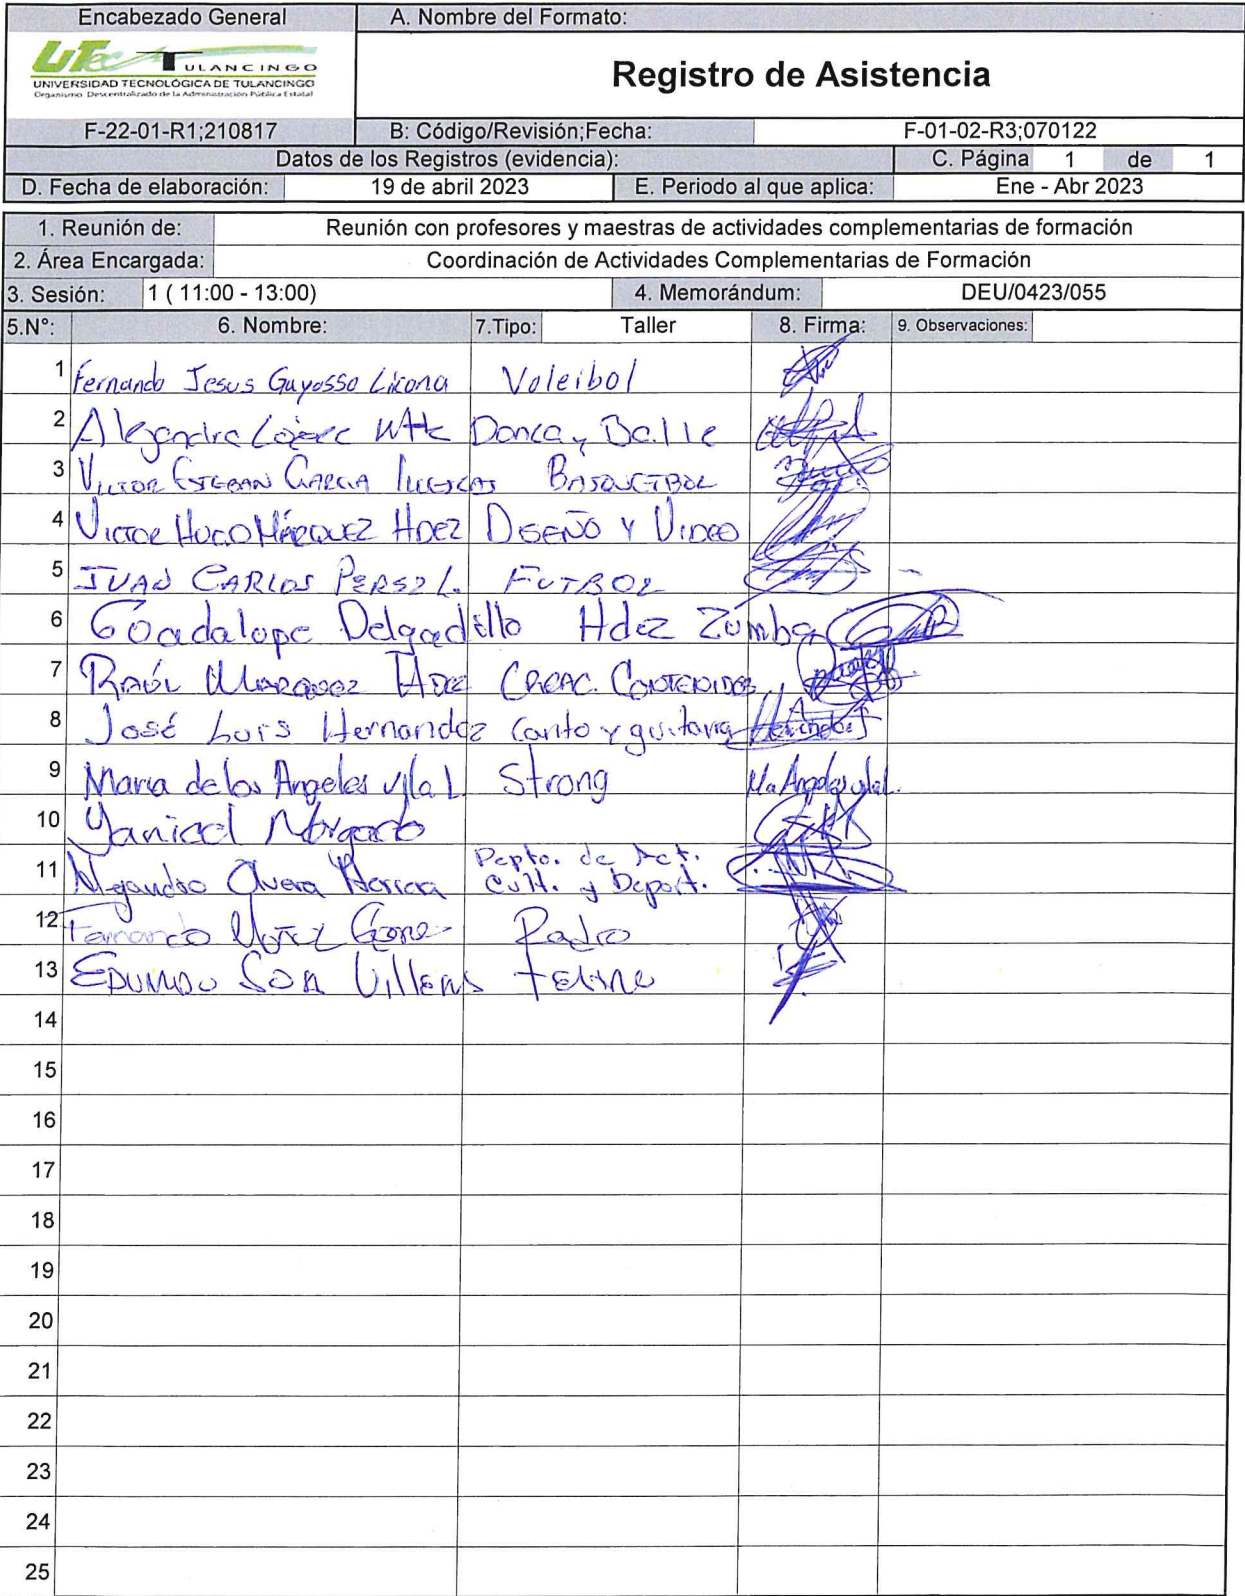 Encabezado General A. Nombre del Formato:
UTec TULANCINGO
UNIVERSIDAD TECNOLÓGICA DE TULANCINGO
Organismo Descentralizado de la Administración Pública Estatal
Registro de Asistencia
F-22-01-R1;210817 B: Código/Revisión;Fecha: F-01-02-R3;070122
Datos de los Registros (evidencia): C. Página 1 de 1
D. Fecha de elaboración: 19 de abril 2023 E. Periodo al que aplica: Ene - Abr 2023
1. Reunión de: Reunión con profesores y maestras de actividades complementarias de formación
2. Área Encargada: Coordinación de Actividades Complementarias de Formación
3. Sesión: 1 ( 11:00 - 13:00) 4. Memorándum: DEU/0423/055
5.N°: 6. Nombre: 7.Tipo: Taller 8. Firma: 9. Observaciones:
1 Fernando Jesus Gayosso Licona Voleibol
2 Alejandra Danza y Baile
3 VICTOR ESTEBAN GARCIA BASQUETBOL
4 VICTOR HUGO MÁRQUEZ HDEZ DISEÑO Y VIDEO
5 JUAN CARLOS PEREZ L. FUTBOL
6 Guadalupe Delgadillo Hdez Zumba
7 RAÚL MARQUEZ HDEZ CREAC. CONTENIDOS
8 José Luis Hernandez Canto y guitarra Hernández
9 Maria de los Angeles Vila L. Strong Ma Angeles Vila L.
10 Morgado
11 Alejandro Olvera Herrera Depto. de Act. Cult. y Deport.
12 Fernando Radio
13 EDMUNDO
14
15
16
17
18
19
20
21
22
23
24
25